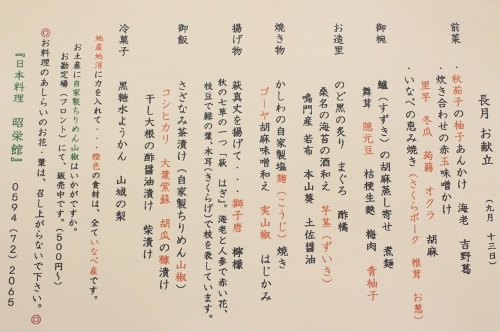 長月 お献立 (九月 十三日)
前菜 ・秋茄子の柚子あんかけ 海老 吉野葛
・炊き合わせの赤玉味噌かけ
里芋 冬瓜 蒟蒻 オクラ 胡麻
・いなべの恵み焼き(さくらポーク 椎茸 お葱)
御椀 鱸(すずき)の胡麻蒸し寄せ 煮麺
舞茸 隠元豆 桔梗生麩 梅肉 青柚子
お造里 のど黒の炙り まぐろ 酢橘
桑名の海苔の酒和え 芋茎(ずいき)
鳴門産 若布 本山葵 土佐醤油
焼き物 かしわの自家製塩麹(こうじ)焼き
ゴーヤ胡麻味噌和え 実山椒 はじかみ
揚げ物 萩真丈を揚げて・・・獅子唐 檸檬
秋の七草の一つ「萩 はぎ」。海老と人参で赤い花、
枝豆で緑の葉、木耳(きくらげ)で枝を表しています。
御飯 さざなみ茶漬け(自家製ちりめん山椒)
コシヒカリ 大葉紫蘇 胡瓜の糠漬け
干し大根の酢醤油漬け 柴漬け
冷菓子 黒糖水ようかん 山城の梨
地産地消に力を入れて・・・橙色の食材は、全ていなべ産です。
お土産に自家製ちりめん山椒はいかがですか。
お勘定場(フロント)にて、販売中です。(500円~)
◎お料理のあしらいのお花・葉は、召し上がらないで下さい。◎
『日本料理 昭栄館』 0594(72)2065